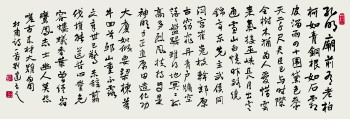 孔明廟前有老柏
柯如青銅根如石霜
皮溜雨四十圍黛色參
天二千尺君臣已與時際
會樹木猶為人愛惜雲
來氣接巫峽長月出寒
通雪山白憶昨路繞
錦亭東先主武侯同
閟宮崔嵬枝幹郊原
古窈窕丹青戶牖空
落落盤踞雖得地冥冥
孤高多烈風扶持自是
神明力正直原因造化功
大廈如傾要梁棟萬
牛回首丘山重不露文
章世已驚未辭翦伐
誰能送苦心豈免
容螻蟻香葉終經宿
鸞鳳志士幽人莫怨
嗟古來材大難為用
杜甫詩